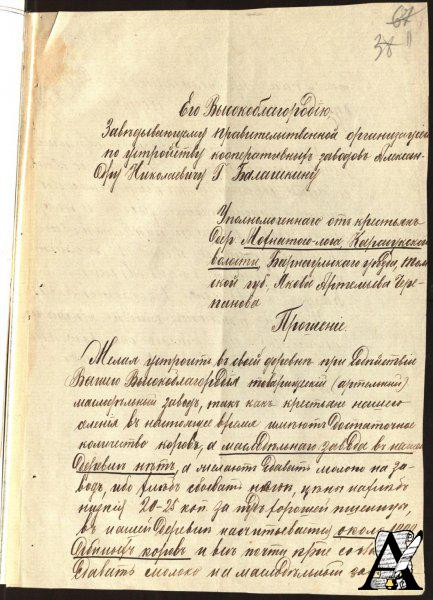 67
38
Его Высокоблагородію
Завѣдывающему правительственной организаціей
по устройству кооперативныхъ заводовъ Алексан-
дру Николаевичу Г. Балакшину
Уполномоченнаго отъ крестьянъ
дер. Мохнатаго-лога, Карасукской
волости, Барнаульскаго уѣзда, Том-
ской губ. Якова Артемьева Чере-
панова
Прошеніе.
Желая устроить въ своей деревнѣ при содѣйствіи
Вашего Высокоблагородія товарищескій (артельный)
маслодѣльный заводъ, такъ какъ крестьяне нашего
селенія въ настоящее время имѣютъ достаточное
количество коровъ, а маслодѣльнаго завода въ нашей
деревнѣ нѣтъ, а желаютъ сдавать молоко на за-
водъ, ибо хлѣбъ сбывать цѣны на хлѣбъ
низкія 20-25 коп. за пудъ хорошей пшеницы,
въ нашей деревнѣ насчитывается около 1000
дойныхъ коровъ и всѣ почти
сдавать молоко на маслодѣльный
А